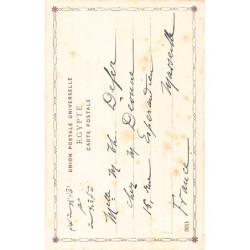 UNION POSTALE UNIVERSELLE
EGYPTE
CARTE POSTALE
Melle M. Th. Defer
chez M Devonne
15, rue Esperandieu
Marseille
France